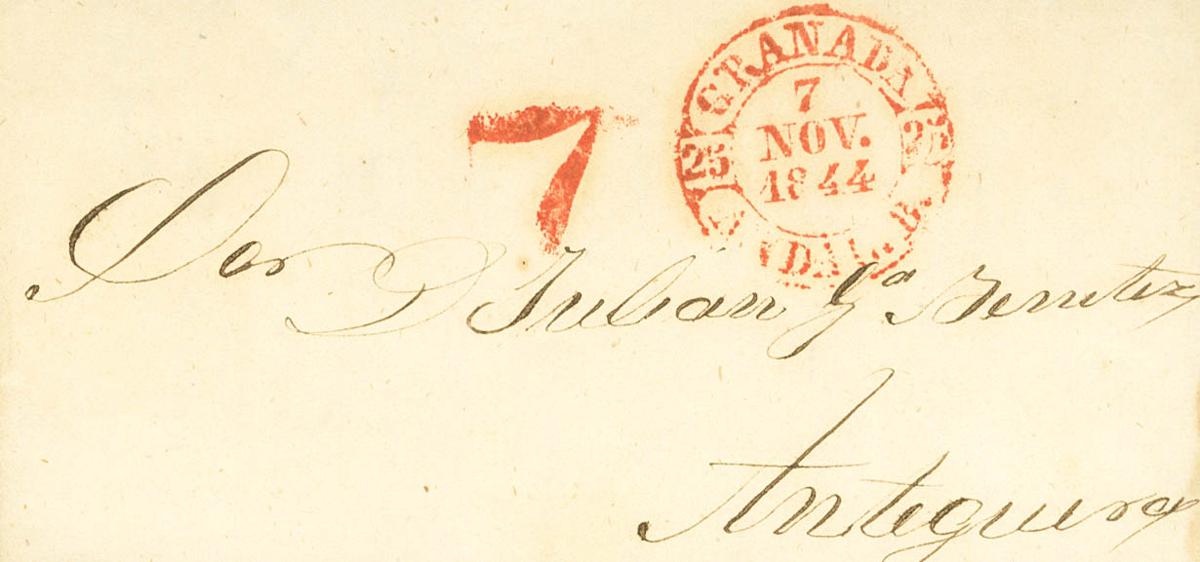 GRANADA
7
7
NOV.
1844
25 25
ANDAL. B.
Sor D Julian Ga Benitez
Antequera